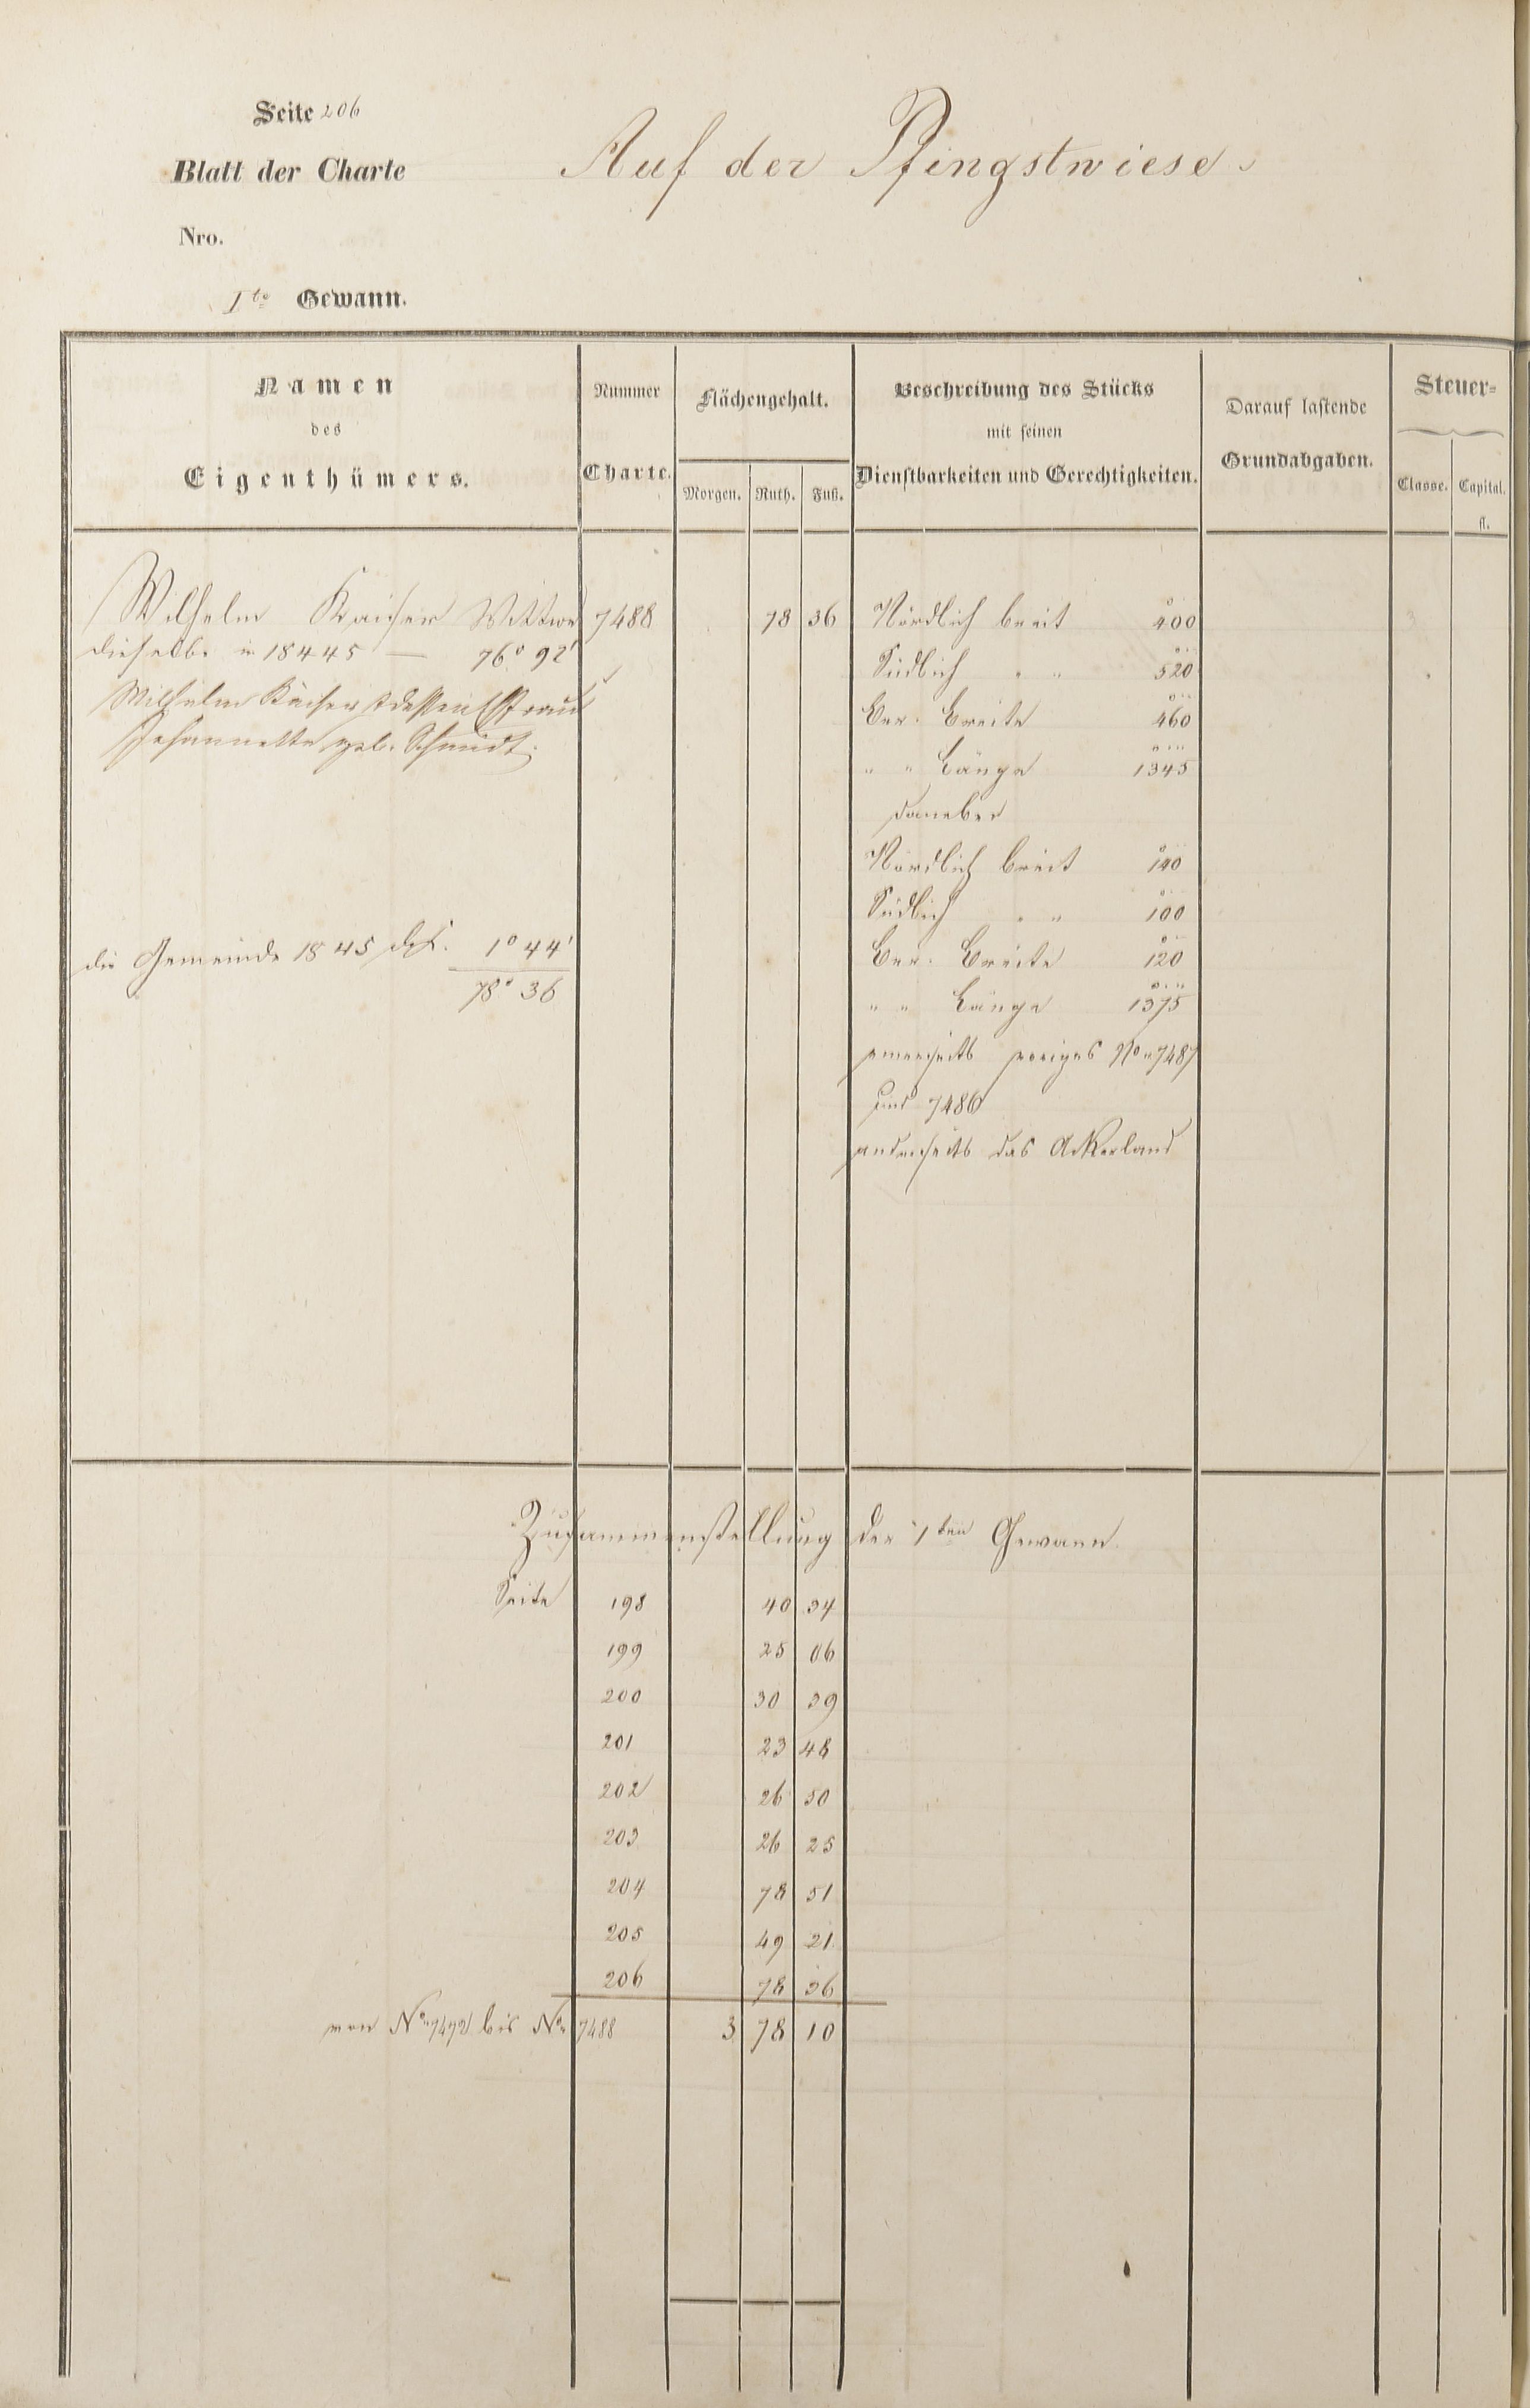 Seite 206
Blatt der Charte
Auf der Pfingstwiese.
Nro.
1te Gewann.
Namen
des
Eigenthümers.
Nummer
Charte.
Flächengehalt.
Morgen. Ruth. Fuß.
Beschreibung des Stücks
mit seinen
Dienstbarkeiten und Gerechtigkeiten.
Darauf lastende
Grundabgaben.
Steuer-
Classe. Capital.
fl.
Wilhelm Kaiser Wittwe 7488 78 36 Nördlich breit 400
dieselbe in 18445 — 76° 92'
Südlich " " 520
Wilhelm Kaiser & dessen Ehefrau
Ber. Breite 460
Johannette geb. Schmidt.
" " Länge 1345
daneben
Nördlich breit 140
Südlich " " 100
die Gemeinde 1845 1° 44'
Ber. Breite 120
78° 36
" " Länge 1375
einerseits voriges No 7487
und 7486
anderseits das Ackerland
Zusammenstellung der 1ten Gewann.
Seite 198 40 34
199 25 06
200 30 39
201 23 48
202 26 50
203 26 25
204 78 51
205 49 21
206 78 36
von No 7472 bis No 7488 3 78 10